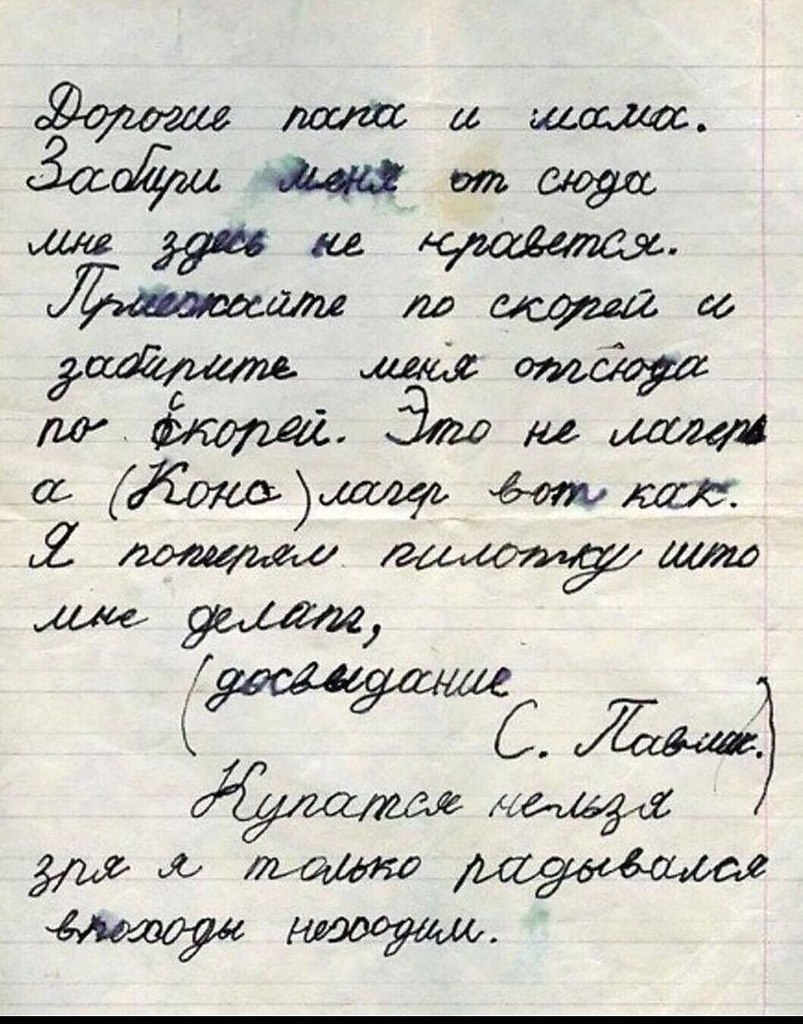 Дорогие папа и мама.
Забири меня от сюда
мне здесь не кравется.
Приезжайте по скорей и
забирите меня отсюда
по скорей. Это не лагерь
а (Конс) лагер вот как.
Я потерял пилотку што
мне делат,
(досвыдание
С. Павлик.)
Купатся нельзя
зря я только радывался
впоходы неходим.